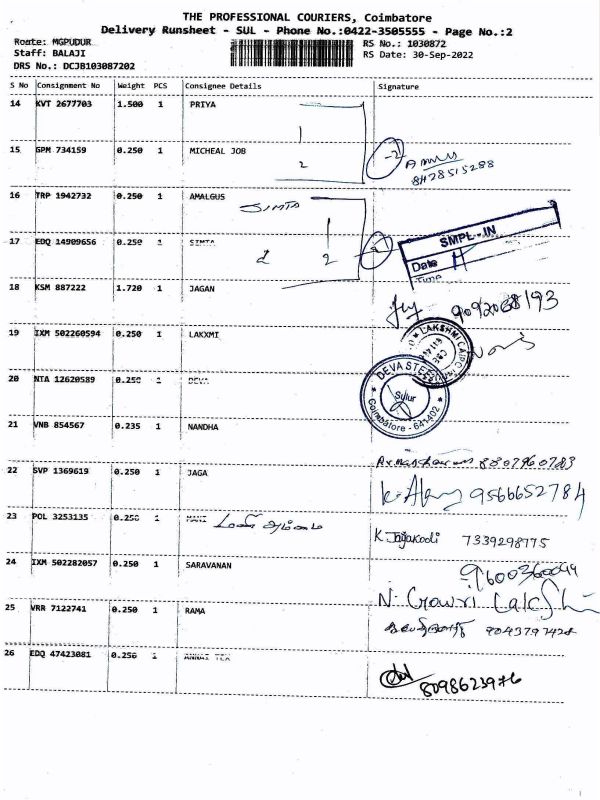 THE PROFESSIONAL COURIERS, Coimbatore
Delivery Runsheet - SUL - Phone No.:0422-3505555 - Page No.:2
Route: MGPUDUR RS No.: 1030872
Staff: BALAJI RS Date: 30-Sep-2022
DRS No.: DCJB103087202
S No Consignment No Weight PCS Consignee Details Signature
14 KVT 2677703 1.500 1 PRIYA
1
15 GPM 734159 0.250 1 MICHEAL JOB
2 -2
8478515288
16 TRP 1942732 0.250 1 AMALGUS
SIMTA
1
SMPL-IN
17 EDQ 14909656 0.250 1 SIMTA
2
Date
Time
18 KSM 887222 1.720 1 JAGAN
19 IXM 502260594 0.250 1 LAKXMI
LAKSHMI
20 NTA 12620589 0.250 1 DEVA
DEVA STEEL
Sulur
Coimbatore - 641402
21 VNB 854567 0.235 1 NANDHA
22 SVP 1369619 0.250 1 JAGA
9566652784
23 POL 3253135 0.250 1 MANI
K Jayakodi 7339298775
24 IXM 502282057 0.250 1 SARAVANAN
N. Gowri Lakshi
25 VRR 7122741 0.250 1 RAMA
9043797424
26 EDQ 47423081 0.250 1 ANNAI TEX
8098623976